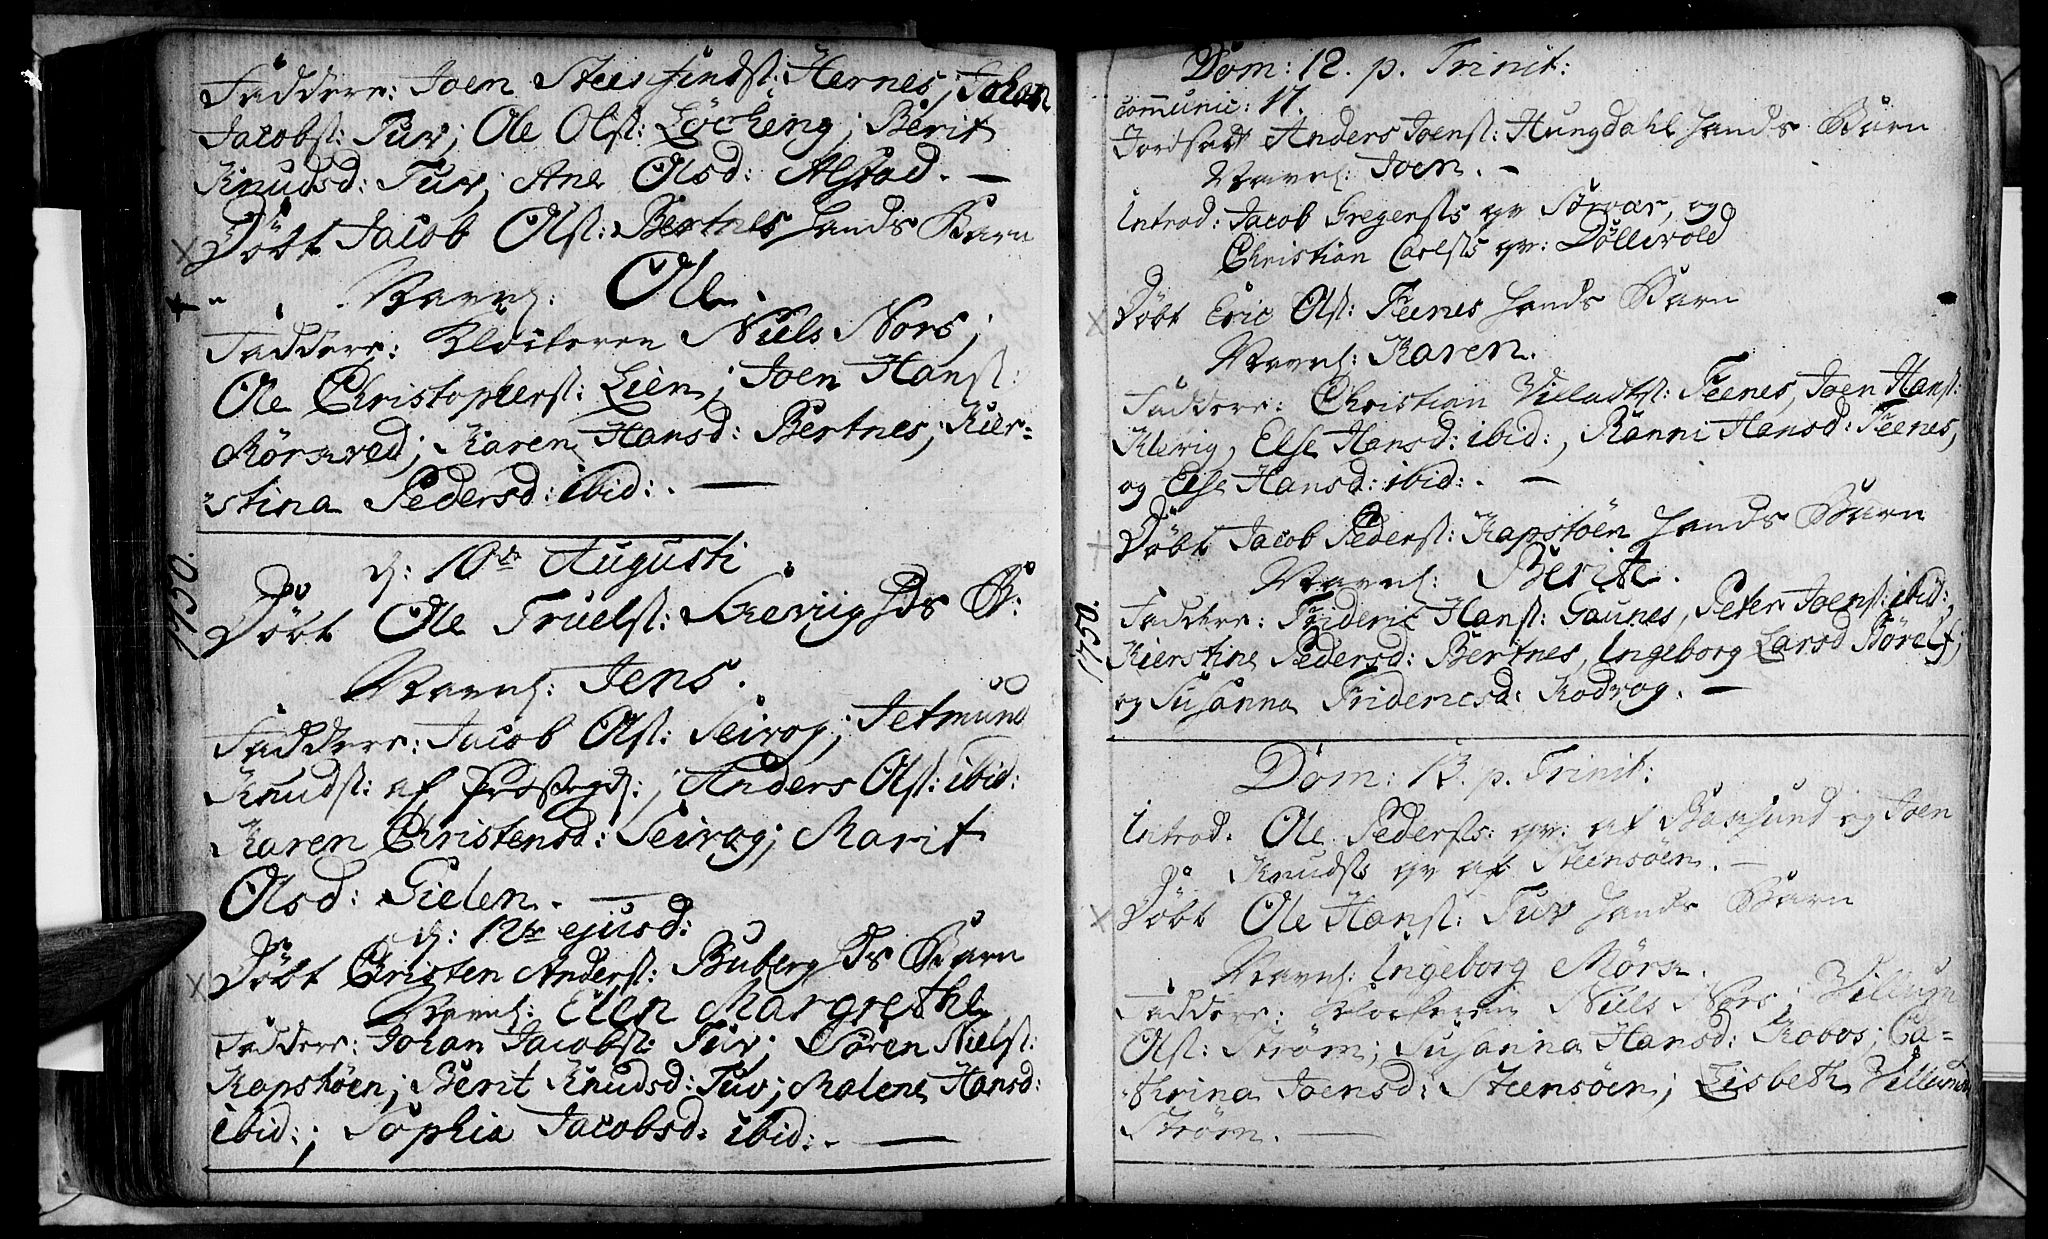 Faddere: Joen Steensindst: Hernes; Johan
Jacobst: Tuv; Ole Olst: Løckeng; Berit
Knudsd: Tuv; Ane Olsd: Alstad. —
Døbt Jacob Olst: Bertnes hands Barn
Navnl: Ole.
Faddere: Klockeren Niels Nors;
Ole Christopherst: Lien; Joen Hanst:
Mørkved; Karen Hansd: Bertnes; Kier-
stina Pedersd: ibid: . —
1750.
d: 10de Augusti
Døbt Ole Truelst: Skeviig Hds B:
Navnl: Jens.
Faddere: Jacob Olst: Seivog; Jetmund
Knudst: af Prostegd:; Anders Olst: ibid:
Karen Christensd: Seivog; Marit
Olsd: Gielen. —
d: 12te ejusd:
Døbt Christen Anderst: Buberg Hds Barn
Navnl: Elen Margrethe
Faddere: Johan Jacobst: Tuv; Søren Nielst:
Kapstøen; Berit Knudsd: Tuv; Malene Hansd:
ibid:; Sophia Jacobsd: ibid: . —
Dom: 12. p. Trinit:
communic: 17.
Jordsatt Anders Joenst: Hungdahl hands Barn
Navnl: Joen. —
Introd: Jacob Gregersts qv Sørvær, og
Christian Carlsts qv: Døllivold
Døbt Eric Olst: Feenes hands Barn
Navnl: Karen.
Faddere: Christian Villadst: Feenes, Joen Hanst:
Klevig, Else Hansd: ibid:, Ranni Hansd: Feenes,
og Else Hansd: ibid: . —
Døbt Jacob Pederst: Kapstøen hands Barn
Navnl: Berit.
1750.
Faddere: Frideric Hanst: Gaunes, Peter Joenst: ibid:,
Kierstine Pedersd: Bertnes, Ingeborg Larsd
og Susanna Fridericsd: Kodvog. —
Dom: 13. p. Trinit:
Introd: Ole Pedersts: qv: af og Joen
Knudsts qv af Steensøen. —
Døbt Ole Hanst: Tuv hands Barn
Navnl: Ingeborg
Faddere: Klockeren Niels Nors; Villum
Olst: Strøm; Susanna Hansd: Ca-
thrina Joensd: Steensøen; Lisbeth
Strøm. —